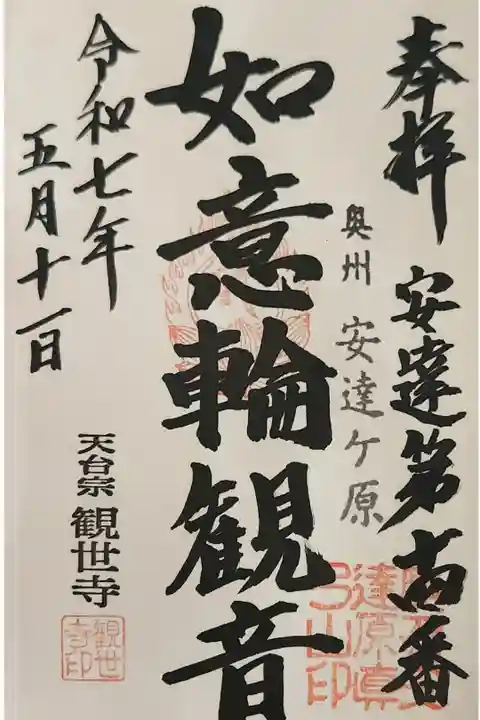 奉拝 安達第 番
奥州 安達ケ原
如意輪観音
達原真
弓山印
令和七年
五月十一日
天台宗 観世寺
觀世
寺印